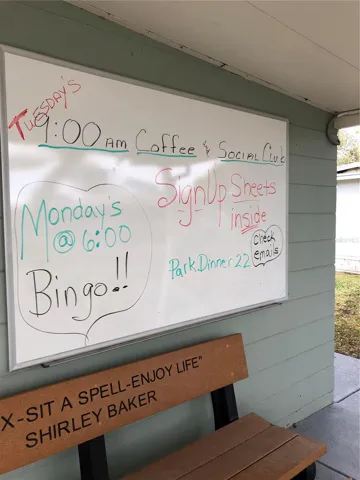 TUESDAY'S
9:00 AM Coffee & SOCIAL Club
SignUp Sheets
inside
Monday's
@ 6:00
Bingo!!
Park Dinner 22
Check
emails
X-SIT A SPELL-ENJOY LIFE"
SHIRLEY BAKER